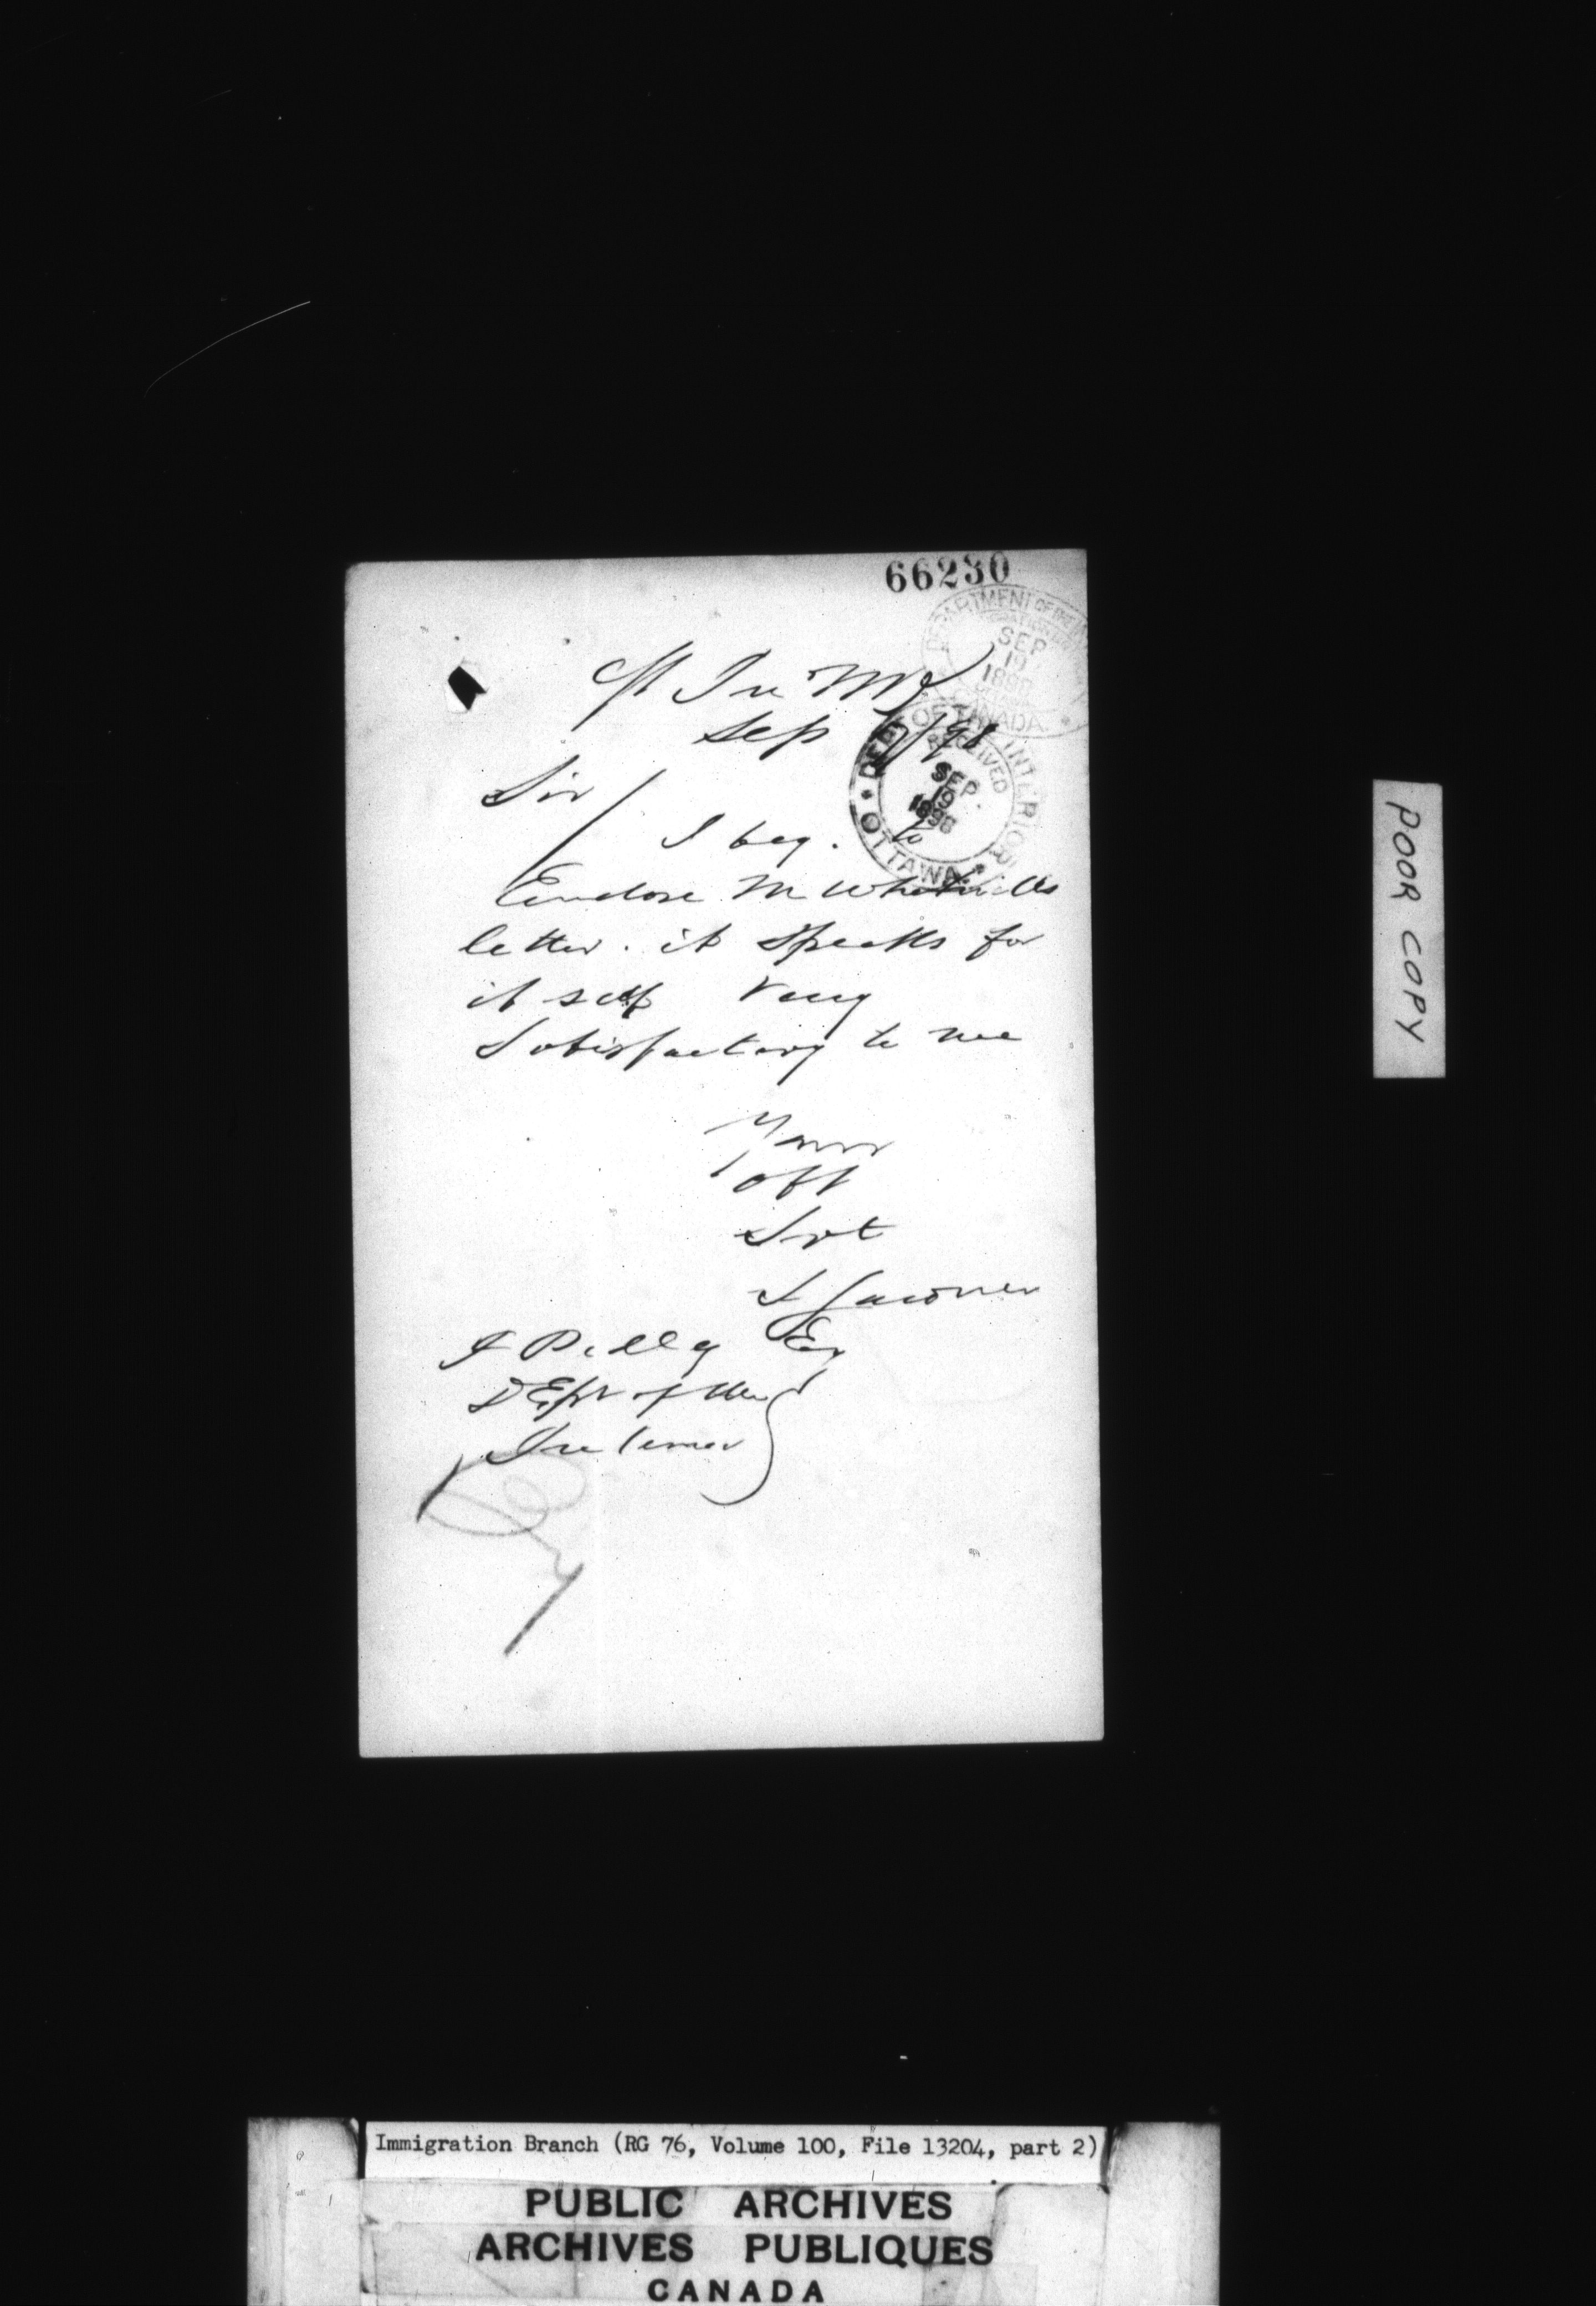 66230
DEPARTMENT OF THE
SEP
19
1898
CANADA
Sep /98
DEPT OF THE INTERIOR
RECEIVED
SEP.
19
1898
OTTAWA
Sir/
I beg. to
Enclose Mr
letter. it Speaks for
it self Very
Satisfactory to me
Yours
Obt
Srt
Esq
DEpt of the
Interior
POOR COPY
Immigration Branch (RG 76, Volume 100, File 13204, part 2)
PUBLIC ARCHIVES
ARCHIVES PUBLIQUES
CANADA